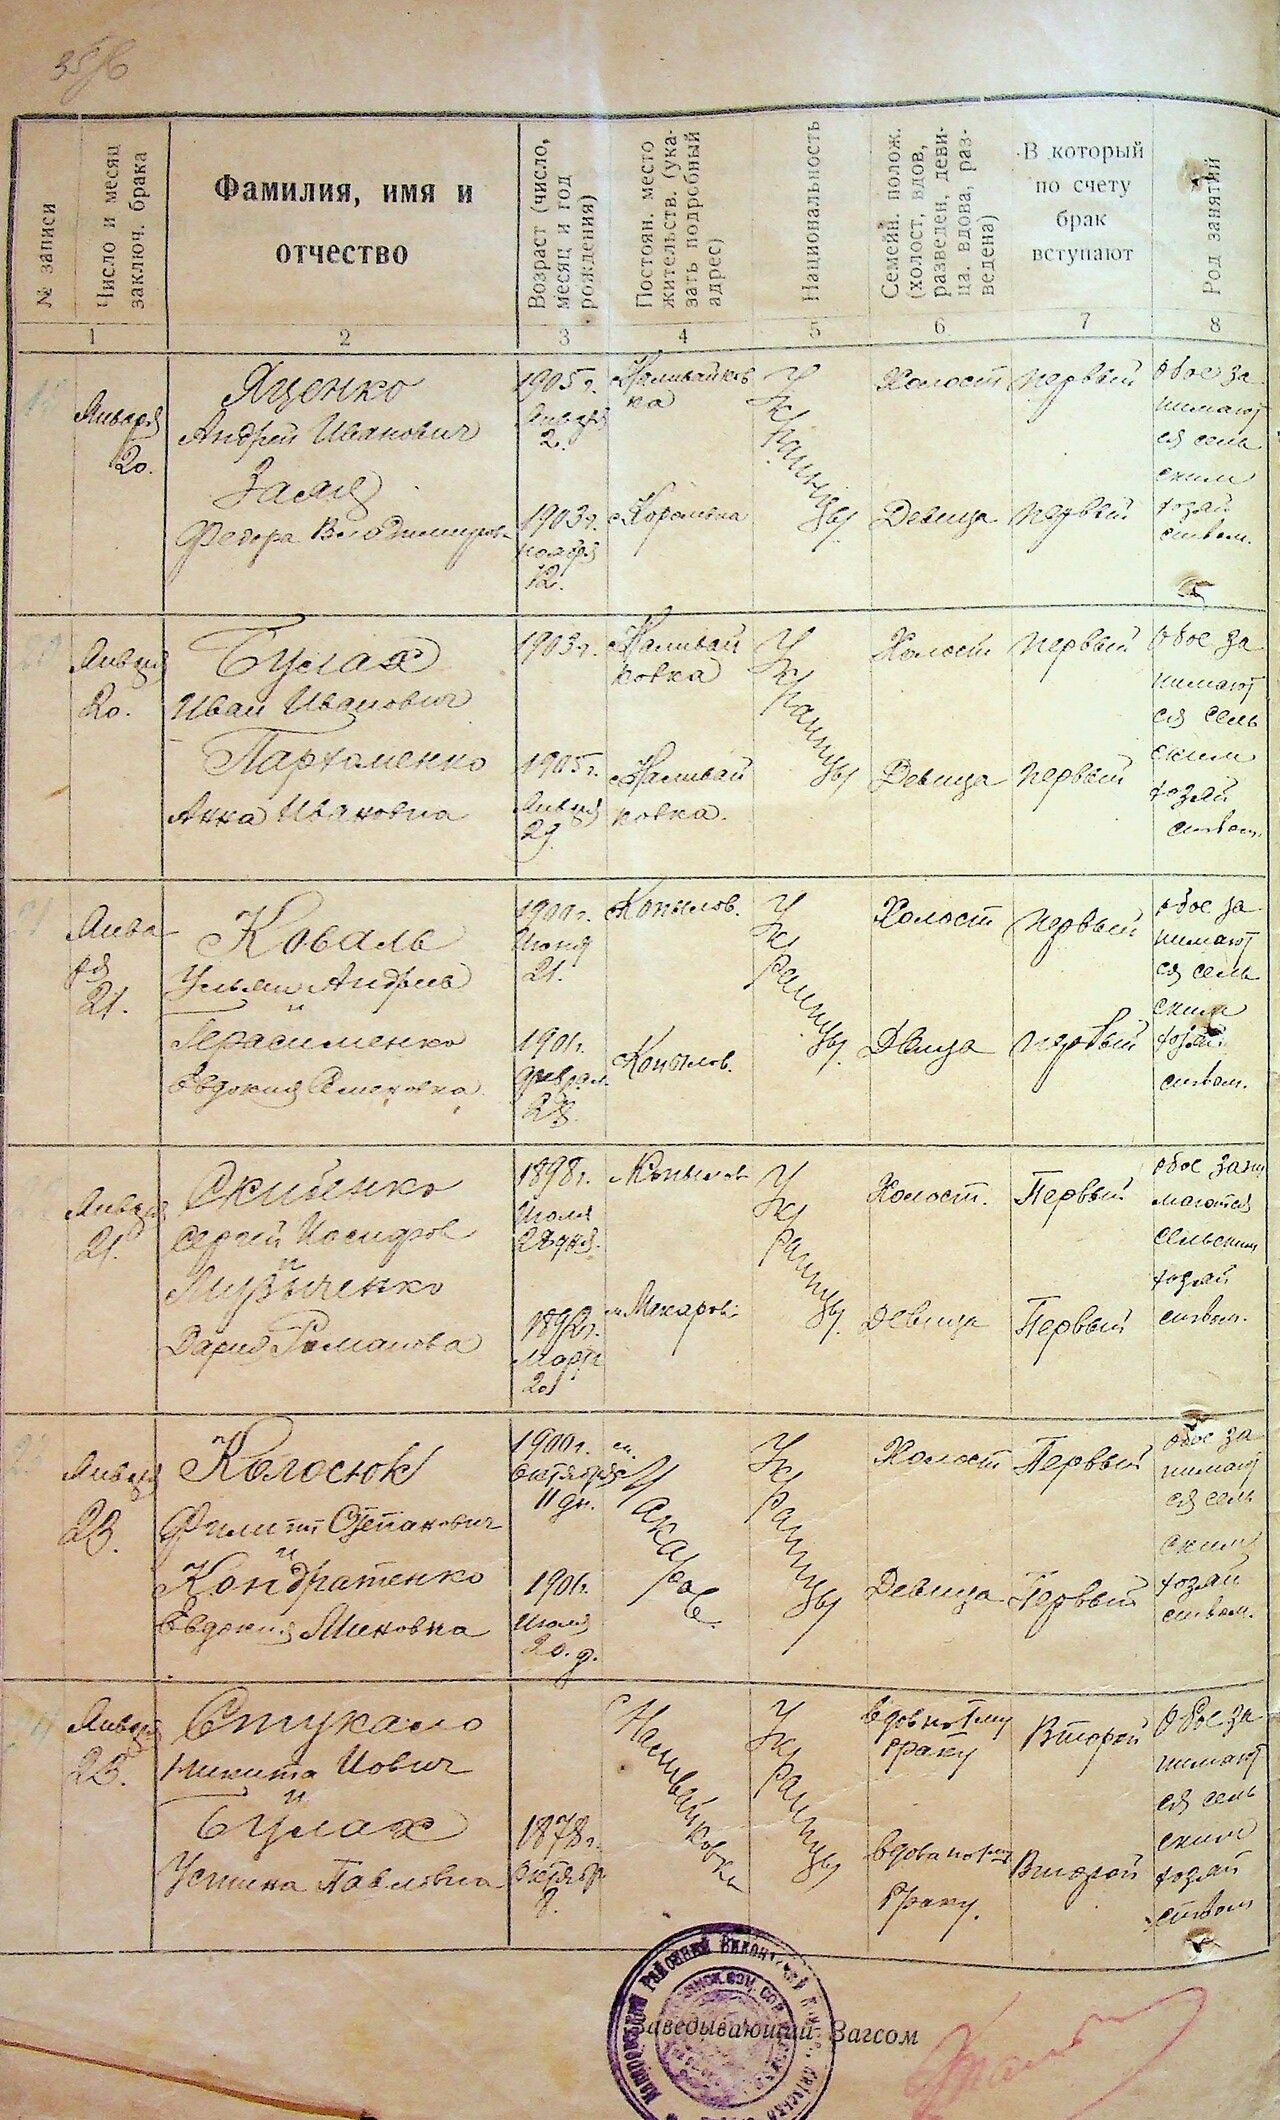 № записи
Число и месяц
заключ. брака
Фамилия, имя и
отчество
Возраст (число,
месяц и год
рождения)
Постоян. место
жительств. (ука-
зать подробный
адрес)
Национальность
Семейн. полож.
(холост, вдов,
разведен, деви-
ца. вдова, раз-
ведена)
В который
по счету
брак
вступают
Род занятий
1 2 3 4 5 6 7 8
Января
20.
Яценко
Андрей Иванович
Федора
1905 г.
Января
2.
1903 г.
ноября
12.
Наливайков
ка
с. Королевка
Украинцы
Холост
Девица
первый
первый
Обое за
нимают
ся сель
ским
хозяй
ством.
Января
20.
Булах
Иван Иванович
Пархоменко
Анна Ивановна
1903 г.
1905 г.
Января
29.
Наливай
ковка
Наливай
ковка.
Украинцы
Холост
Девица
первый
первый
Обое за
нимают
ся сель
ским
хозяй
ством.
Янва
ря
21.
Коваль
Ульян Андреев
и
Герасименко
Евдокия Семеновна
1900 г.
Июня
21.
1901 г.
Феврал.
Копылов.
Копылов.
Украинцы
Холост
Двица
первый
первый
обое за
нимают
ся сель
ским
хозяй
ством.
Января
21.
Скибенко
Сергей
и
Музыченко
Дария Романова
1898 г.
Июля
Марта
20
Копылов
м. Макаров
Украинцы
Холост.
Девица
Первый
Первый
обое зани
маются
сельским
хозяй
ством.
Января
23.
Колосюк
Филипп Степанович
и
Кондратенко
Евдокия Миновна
1900 г.
Октября
11 дн.
1901 г.
Июля
20. д.
м.
Макаров.
Украинцы
Холост
Девица
Первый
Первый
обое за
нимают
ся сель
ским
хозяй
ством.
Января
23.
Стукало
Никита Иович
и
Булах
Устина Павловна
1878 г.
Октябр
8.
с Наливайковка
Украинцы
вдов по 1му
браку
вдова по
браку.
Второй
Второй
Обое за
нимают
ся сель
ским
хозяй
ством
Заведывающий Загсом